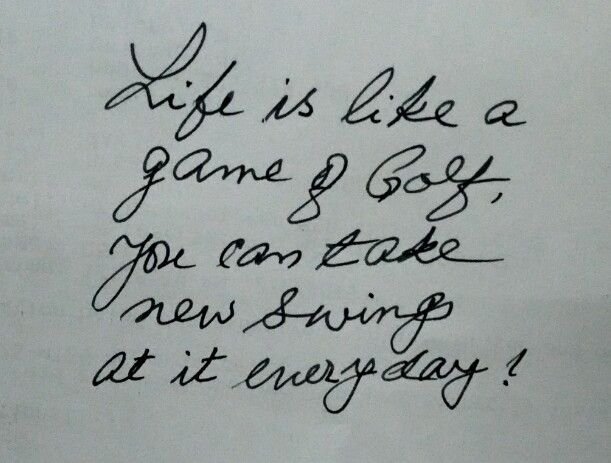 Life is like a
game of Golf,
you can take
new swings
at it everyday!